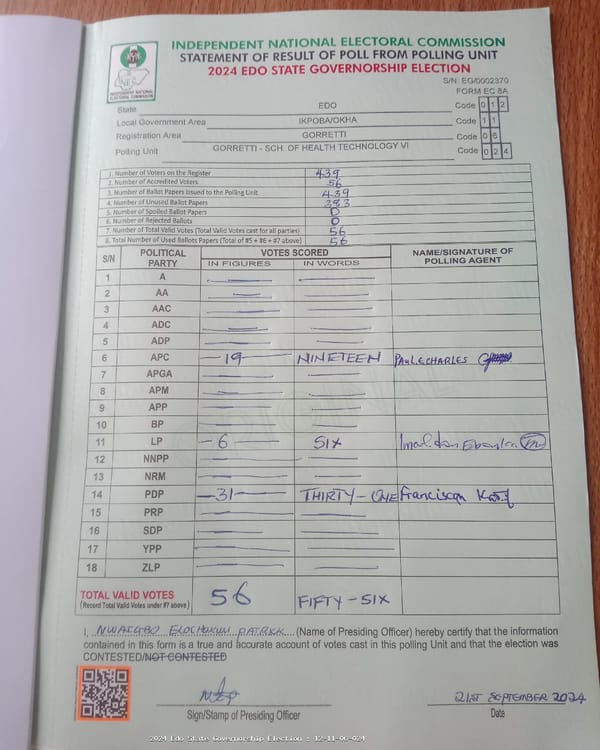 INDEPENDENT NATIONAL ELECTORAL COMMISSION
STATEMENT OF RESULT OF POLL FROM POLLING UNIT
2024 EDO STATE GOVERNORSHIP ELECTION
S/N EG/0002370
FORM EC 8A
INDEPENDENT NATIONAL ELECTORAL COMMISSION
State EDO Code 0 1 2
Local Government Area IKPOBA/OKHA Code 1 1
Registration Area GORRETTI Code 0 6
Polling Unit GORRETTI - SCH. OF HEALTH TECHNOLOGY VI Code 0 2 4
1. Number of Voters on the Register 439
2. Number of Accredited Voters 56
3. Number of Ballot Papers Issued to the Polling Unit 439
4. Number of Unused Ballot Papers 383
5. Number of Spoiled Ballot Papers 0
6. Number of Rejected Ballots 0
7. Number of Total Valid Votes (Total Valid Votes cast for all parties) 56
8. Total Number of Used Ballots Papers (Total of #5 + #6 + #7 above) 56
S/N POLITICAL PARTY VOTES SCORED NAME/SIGNATURE OF POLLING AGENT
IN FIGURES IN WORDS
1 A
2 AA
3 AAC
4 ADC
5 ADP
6 APC -19- NINETEEN PAUL.E.CHARLES
7 APGA
8 APM
9 APP
10 BP
11 LP -6- SIX
12 NNPP
13 NRM
14 PDP -31- THIRTY-ONE Franciscan
15 PRP
16 SDP
17 YPP
18 ZLP
TOTAL VALID VOTES 56 FIFTY-SIX
(Record Total Valid Votes under #7 above)
I, PATRICK (Name of Presiding Officer) hereby certify that the information
contained in this form is a true and accurate account of votes cast in this polling Unit and that the election was
CONTESTED/NOT CONTESTED
21ST SEPTEMBER 2024
Sign/Stamp of Presiding Officer Date
2024 Edo State Governorship Election : 12-11-06-024